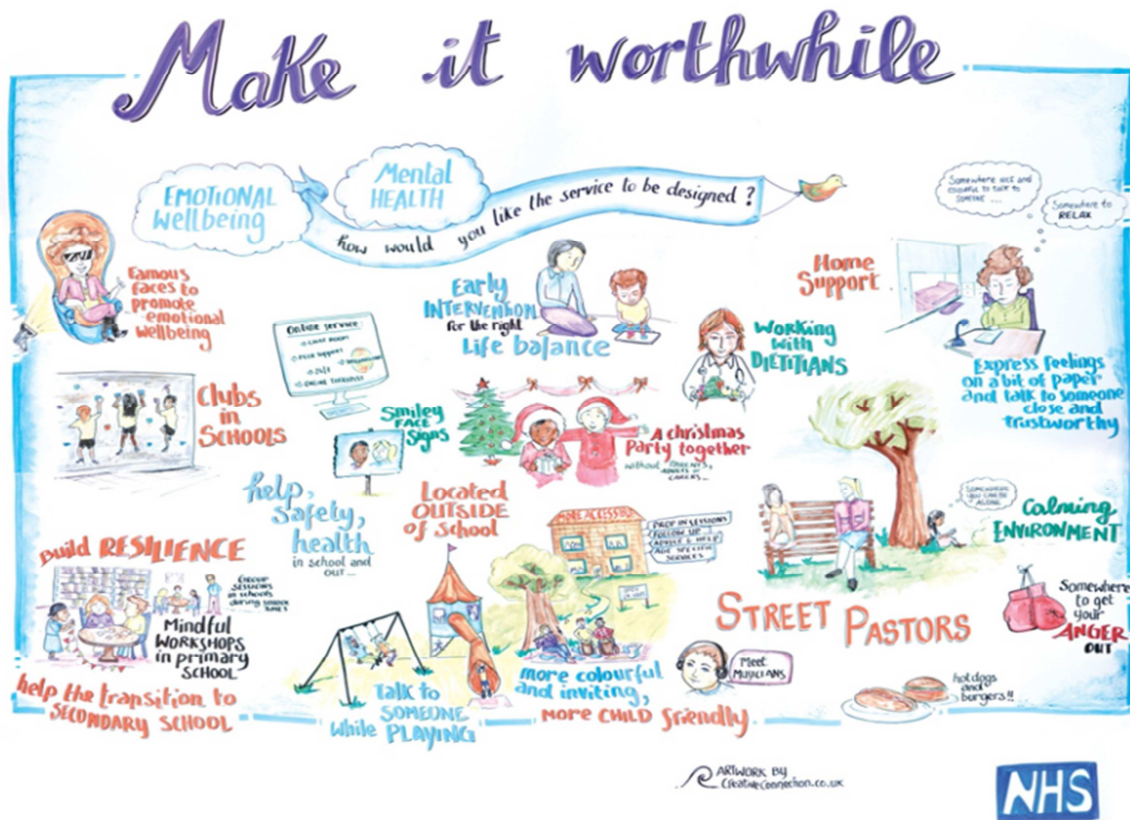 Make it worthwhile
EMOTIONAL
Wellbeing
Mental
HEALTH
how would you like the service to be designed?
Somewhere nice and
colourful to talk to
someone ...
Somewhere to
RELAX
Famous
faces to
promote
emotional
wellbeing
Online service:
CHAT ROOM
PEER SUPPORT
24/7
ONLINE THERAPIST
Early
INTERVENTION
for the right
Life balance
Working
with
DIETITIANS
Home
Support
Express feelings
on a bit of paper
and talk to someone
close and
trustworthy
Clubs
in
SCHOOLS
Smiley
FACE
Signs
A christmas
Party together
without PARENTS,
ADULTS or
CARERS...
help,
Safety,
health
in school and
out...
Located
OUTSIDE
of School
MORE ACCESSIBLE
DROP IN SESSIONS
FOLLOW UP
ADVICE & HELP
AGE SPECIFIC
SERVICES
SOMEWHERE
YOU CAN BE
ALONE
Calming
ENVIRONMENT
Build RESILIENCE
GROUP
SESSIONS
in schools
during school
times
Mindful
WORKSHOPS
in primary
SCHOOL
help the transition to
SECONDARY SCHOOL
Talk to
SOMEONE
while PLAYING
more colourful
and inviting,
MORE CHILD friendly
Meet
MUSICIANS
STREET PASTORS
Somewhere
to get
your
ANGER
OUT
hotdogs
and
burgers!!
ARTWORK BY
creativeconnection.co.uk
NHS